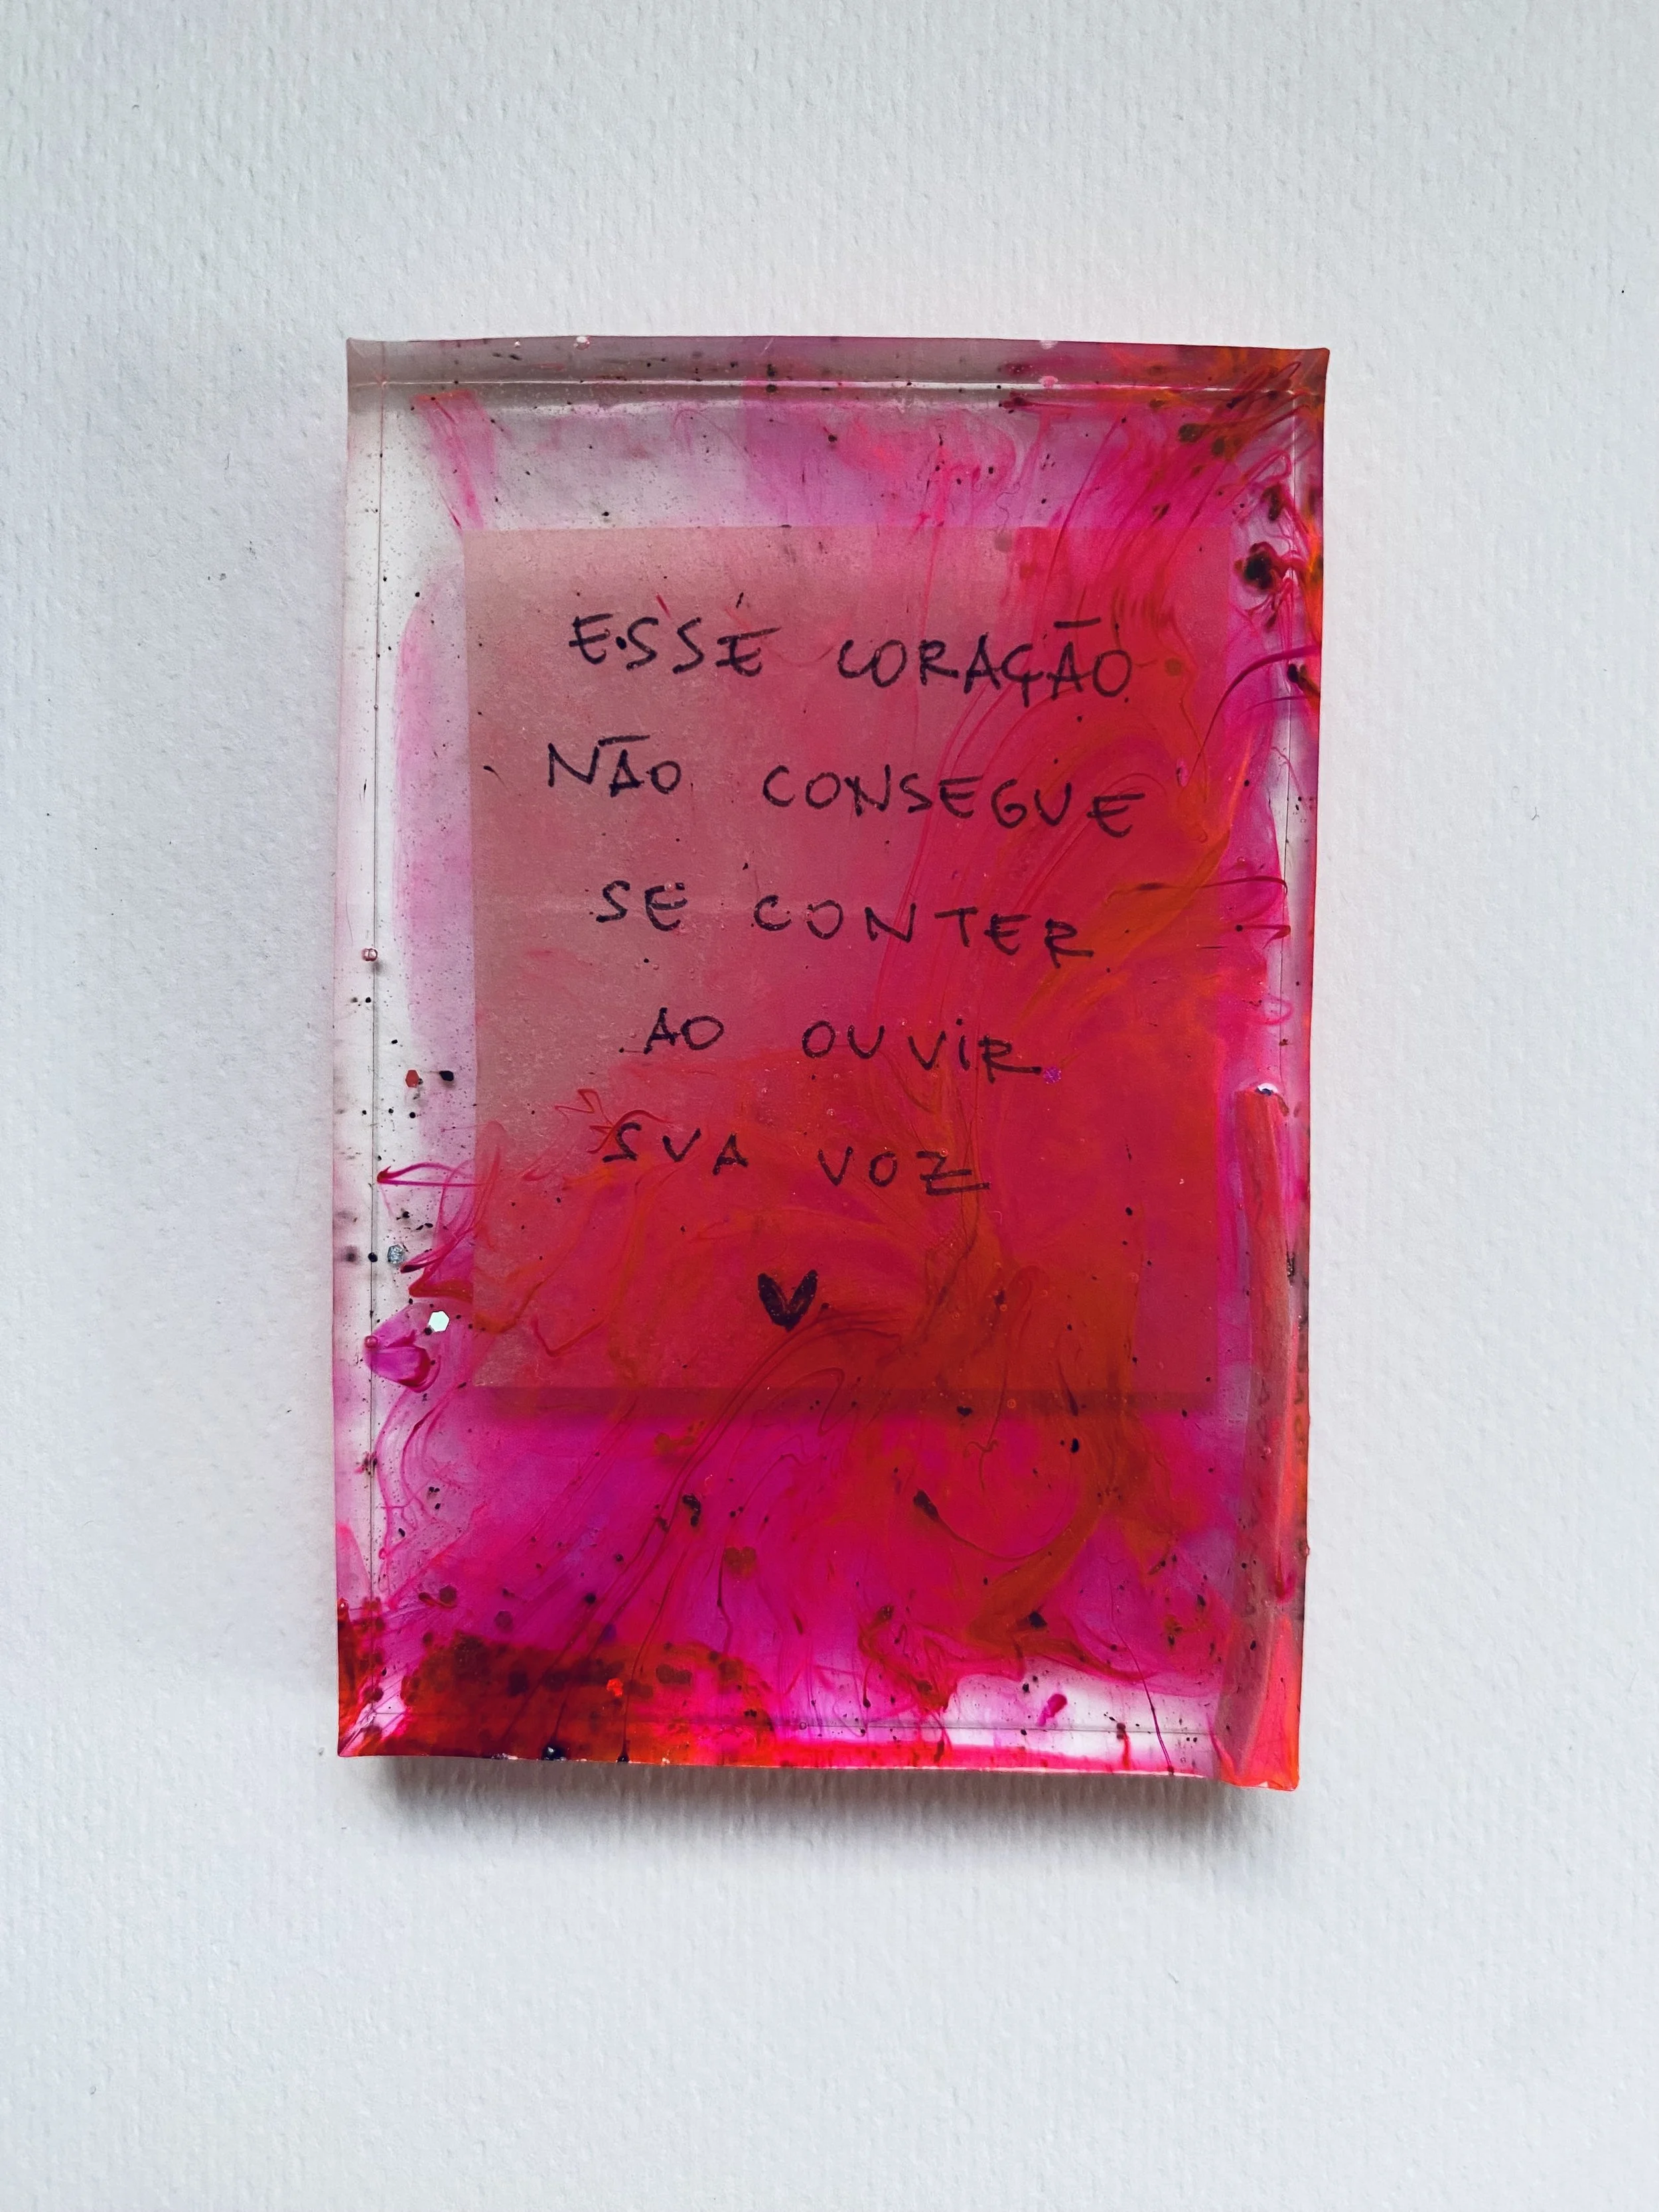 ESSE CORAÇÃO
NÃO CONSEGUE
SE CONTER
AO OUVIR
SUA VOZ